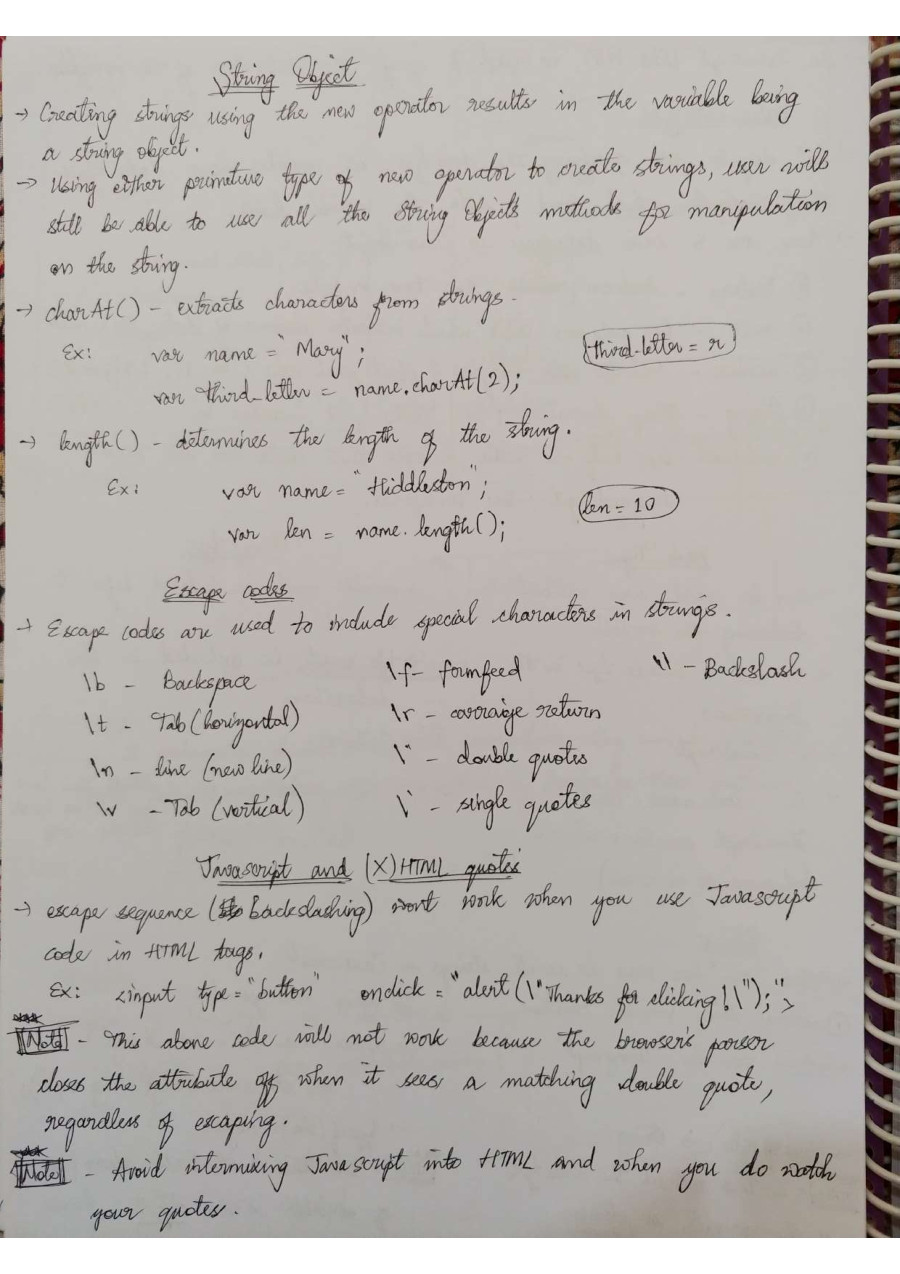 String Object
→ Creating strings using the new operator results in the variable being
a string object.
→ Using either primitive type of new operator to create strings, user will
still be able to use all the String Objects methods for manipulation
on the string.
→ charAt() - extracts characters from strings.
Ex: var name = "Mary";
{third-letter = r}
var third-letter = name.charAt(2);
→ length() - determines the length of the string.
Ex: var name = "Hiddleston";
len = 10
var len = name.length();
Escape codes
→ Escape codes are used to include special characters in strings.
\b - Backspace \f - formfeed \\ - Backslash
\t - Tab (horizontal) \r - carraige return
\n - line (new line) \" - double quotes
\v - Tab (vertical) \' - single quotes
Javascript and (X)HTML quotes
→ escape sequence (Backslashing) wont work when you use Javascript
code in HTML tags.
Ex: <input type="button" onclick = "alert(\"Thanks for clicking!\");">
Note - This above code will not work because the browser's parser
closes the attribute off when it sees a matching double quote,
regardless of escaping.
Note - Avoid intermixing Javascript into HTML and when you do watch
your quotes.